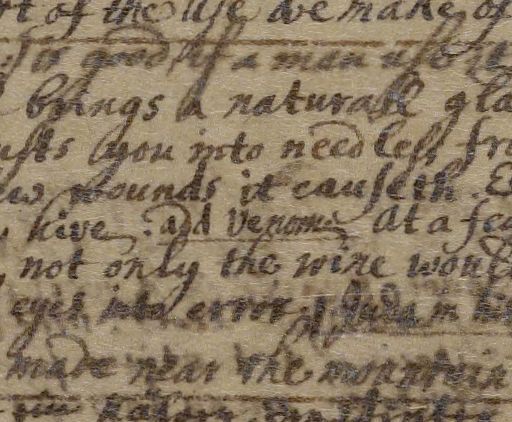 of the Use we make of
is good if a man use it
brings a naturall gla
usts you into needless fr
wounds it causeth. E
kive. add Venome At a fea
not only the wine woul
eyes into error, Judg in
made near the mountain